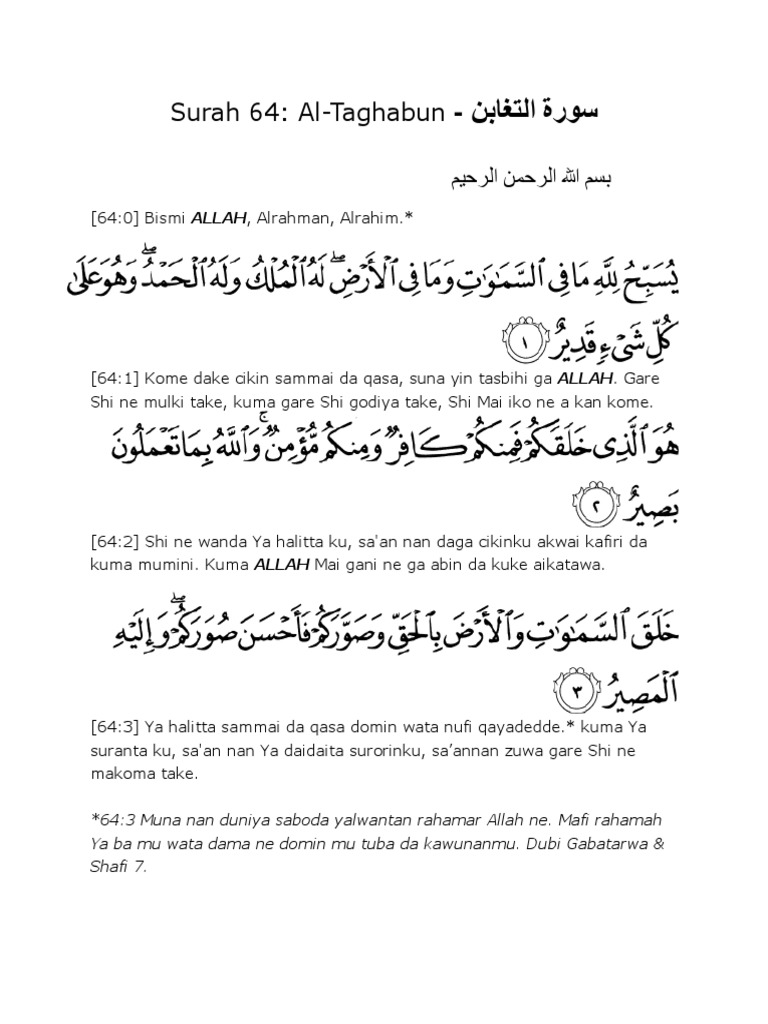 Surah 64: Al-Taghabun - سورة التغابن
بسم الله الرحمن الرحيم
[64:0] Bismi ALLAH, Alrahman, Alrahim.*
يُسَبِّحُ لِلَّهِ مَا فِى ٱلسَّمَٰوَٰتِ وَمَا فِى ٱلْأَرْضِ ۖ لَهُ ٱلْمُلْكُ وَلَهُ ٱلْحَمْدُ ۖ وَهُوَ عَلَىٰ
كُلِّ شَىْءٍ قَدِيرٌ ١
[64:1] Kome dake cikin sammai da qasa, suna yin tasbihi ga ALLAH. Gare
Shi ne mulki take, kuma gare Shi godiya take, Shi Mai iko ne a kan kome.
هُوَ ٱلَّذِى خَلَقَكُمْ فَمِنكُمْ كَافِرٌ وَمِنكُم مُّؤْمِنٌ ۚ وَٱللَّهُ بِمَا تَعْمَلُونَ
بَصِيرٌ ٢
[64:2] Shi ne wanda Ya halitta ku, sa'an nan daga cikinku akwai kafiri da
kuma mumini. Kuma ALLAH Mai gani ne ga abin da kuke aikatawa.
خَلَقَ ٱلسَّمَٰوَٰتِ وَٱلْأَرْضَ بِٱلْحَقِّ وَصَوَّرَكُمْ فَأَحْسَنَ صُوَرَكُمْ ۖ وَإِلَيْهِ
ٱلْمَصِيرُ ٣
[64:3] Ya halitta sammai da qasa domin wata nufi qayadedde.* kuma Ya
suranta ku, sa'an nan Ya daidaita surorinku, sa’annan zuwa gare Shi ne
makoma take.
*64:3 Muna nan duniya saboda yalwantan rahamar Allah ne. Mafi rahamah
Ya ba mu wata dama ne domin mu tuba da kawunanmu. Dubi Gabatarwa &
Shafi 7.